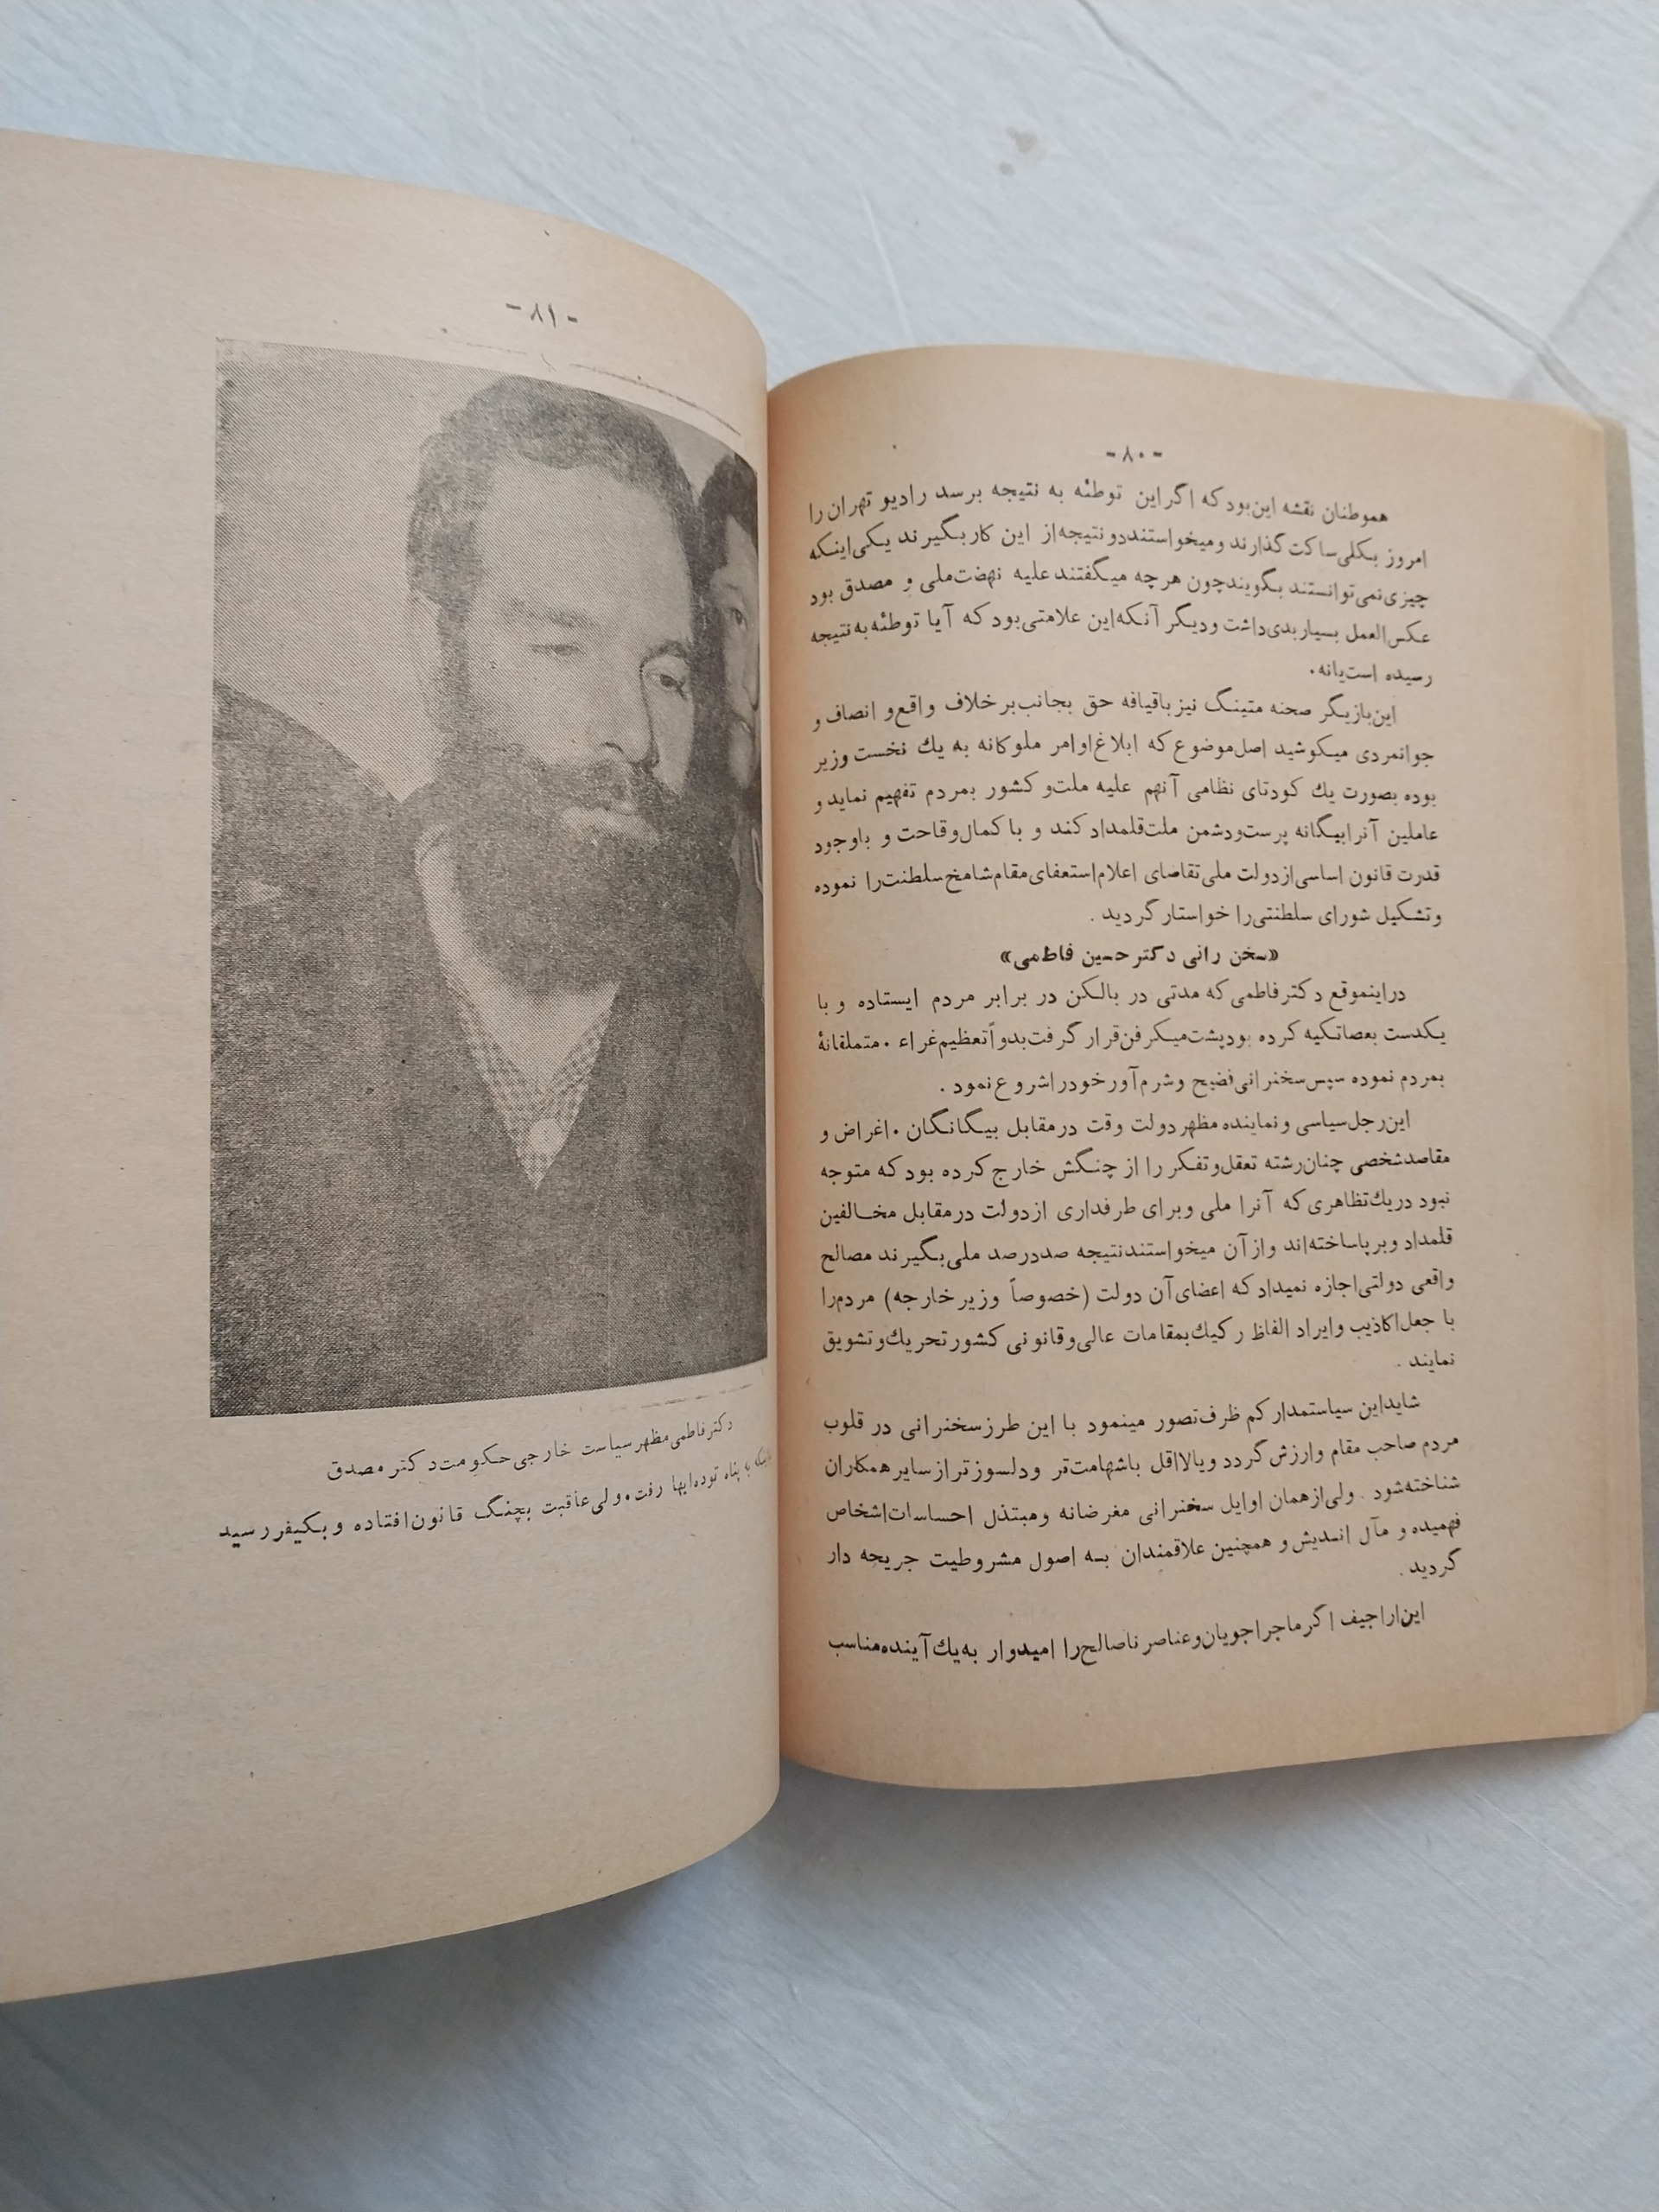 -۸۰-
هموطنان نقشه این‌بود که اگر این توطئه به نتیجه برسد رادیو تهران را
امروز بکلی‌ساکت گذارند و میخواستند دو نتیجه از این کار بگیرند یکی‌اینکه
چیزی‌نمی‌توانستند بگویند چون هرچه میگفتند علیه نهضت‌ملی و مصدق بود
عکس‌العمل بسیار بدی‌داشت و دیگر آنکه‌این علامتی‌بود که آیا توطئه‌به‌نتیجه
رسیده است‌یانه.
این‌بازیگر صحنه متینگ نیز باقیافه حق بجانب‌بر خلاف واقع‌و انصاف و
جوانمردی میکوشید اصل‌موضوع که ابلاغ‌اوامر ملوکانه به یك نخست وزیر
بوده بصورت یك کودتای نظامی آنهم علیه ملت‌و کشور بمردم تفهیم نماید و
عاملین آنرا بیگانه پرست‌ودشمن ملت‌قلمداد کند و با کمال‌وقاحت و باوجود
قدرت قانون اساسی‌از دولت ملی‌تقاضای اعلام‌استعفای‌مقام‌شامخ‌سلطنت‌را نموده
و تشکیل شورای سلطنتی‌را خواستار گردید .
«سخن رانی دکتر حسین فاطمی»
دراینموقع دکتر فاطمی که مدتی در بالکن در برابر مردم ایستاده و با
یکدست بعصا تکیه کرده بود پشت‌میکرفن‌قرار گرفت‌بدواً تعظیم‌غراء . متملقانهٔ
بمردم نموده سپس‌سخنرانی‌فضیح و شرم‌آور خودرا شروع نمود .
این‌رجل‌سیاسی و نماینده مظهر دولت وقت در مقابل بیگانگان . اغراض و
مقاصد شخصی چنان‌رشته تعقل‌وتفکر را از چنگش خارج کرده بود که متوجه
نبود در یك‌تظاهری که آنرا ملی و برای طرفداری از دولت در مقابل مخالفین
قلمداد و برپاساخته‌اند و از آن میخواستند نتیجه صددرصد ملی‌بگیرند مصالح
واقعی دولتی‌اجازه نمیداد که اعضای‌آن دولت (خصوصاً وزیر خارجه) مردم‌را
با جعل‌اکاذیب و ایراد الفاظ رکیك‌بمقامات عالی‌وقانونی کشور تحریك‌وتشویق
نمایند .
شایداین سیاستمدار کم ظرف‌تصور مینمود با این طرز سخنرانی در قلوب
مردم صاحب مقام و ارزش گردد و یالااقل باشهامت‌تر و دلسوزتر از سایر همکاران
شناخته‌شود . ولی‌از همان اوایل سخنرانی مغرضانه و مبتذل احساسات‌اشخاص
فهمیده و مآل اندیش و همچنین علاقمندان به اصول مشروطیت جریحه دار
گردید .
این‌اراجیف اگر ماجراجویان‌و عناصر ناصالح‌را امیدوار به‌یك‌آینده‌مناسب
-۸۱-
دکتر فاطمی مظهر سیاست خارجی حکومت دکتر مصدق
به پناه توده‌ایها رفت . ولی عاقبت بچنگ قانون افتاده و بکیفر رسید